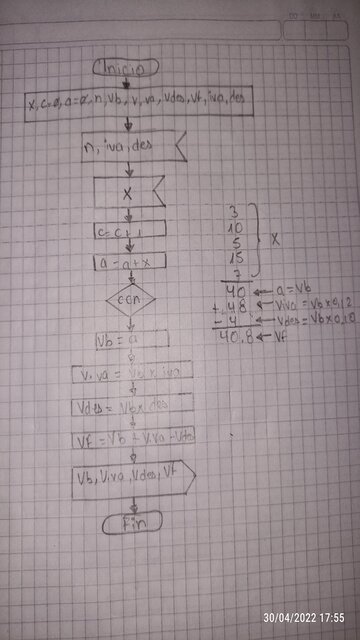 Inicio
x, c=0, a=0, n, Vb, v, iva, Vdes, Vf, iva, des
n, iva, des
X
c=c+1
a=a+x
c<n
Vb = a
Viva = Vb x iva
Vdes = Vb x des
Vf = Vb + Viva - Vdes
Vb, Viva, Vdes, Vf
Fin
3
10
5
15
7
X
40 ← a=Vb
+ 4,8 ← Viva=Vb x 0,12
- 4 ← Vdes=Vb x 0,10
40,8 ← Vf
30/04/2022 17:55